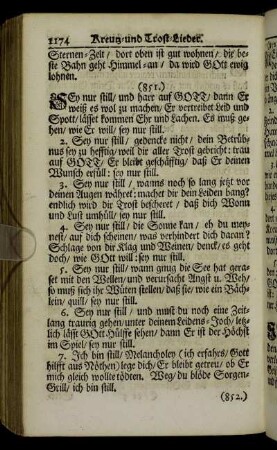 1174 Kreutz und Trost-Lieder.
Sternen-Zelt / dort oben ist gut wohnen / die be-
ste Bahn geht Himmel-an / da wird GOtt ewig
lohnen.
(851.)
SEy nur still / und harr auf GOTT / dann Er
weiß es wol zu machen / Er vertreibet Leid und
Spott / lässet kommen Ehr und Lachen. Es muß ge-
hen / wie Er will / sey nur still.
2. Sey nur still / gedencke nicht / dein Betrüb-
nus sey zu hefftig / weil dir aller Trost gebricht: trau
auf GOTT / Er bleibt geschäfftig / daß Er deinen
Wunsch erfüll: sey nur still.
3. Sey nur still / wanns noch so lang jetzt vor
deinen Augen währet: machet dir dein Leiden bang?
endlich wird dir Trost bescheret / daß dich Wonn
und Lust umhüll / sey nur still.
4. Sey nur still / die Sonne kan / eh du mey-
nest / auf dich scheinen / was verhindert dich daran?
Schlage von dir Klag und Weinen / denck / es geht
doch / wie GOtt will: sey nur still.
5. Sey nur still / wann gnug die See hat gera-
set mit den Wellen / und verursacht Angst u. Weh /
so muß sich ihr Wüten stellen / daß sie / wie ein Bäch-
lein / quill / sey nur still.
6. Sey nur still / und must du noch eine Zeit-
lang traurig gehen / unter deinem Leidens-Joch / letz-
lich läßt GOtt Hülffe sehen / dann Er ist der Höchst
im Spiel / sey nur still.
7. Ich bin still / Melancholey (ich erfahrs / Gott
hilfft aus Nöthen) lege dich / Er bleibt getreu / ob Er
mich gleich wollte tödten. Weg / du blöde Sorgen-
Grill / ich bin still.
(852.)